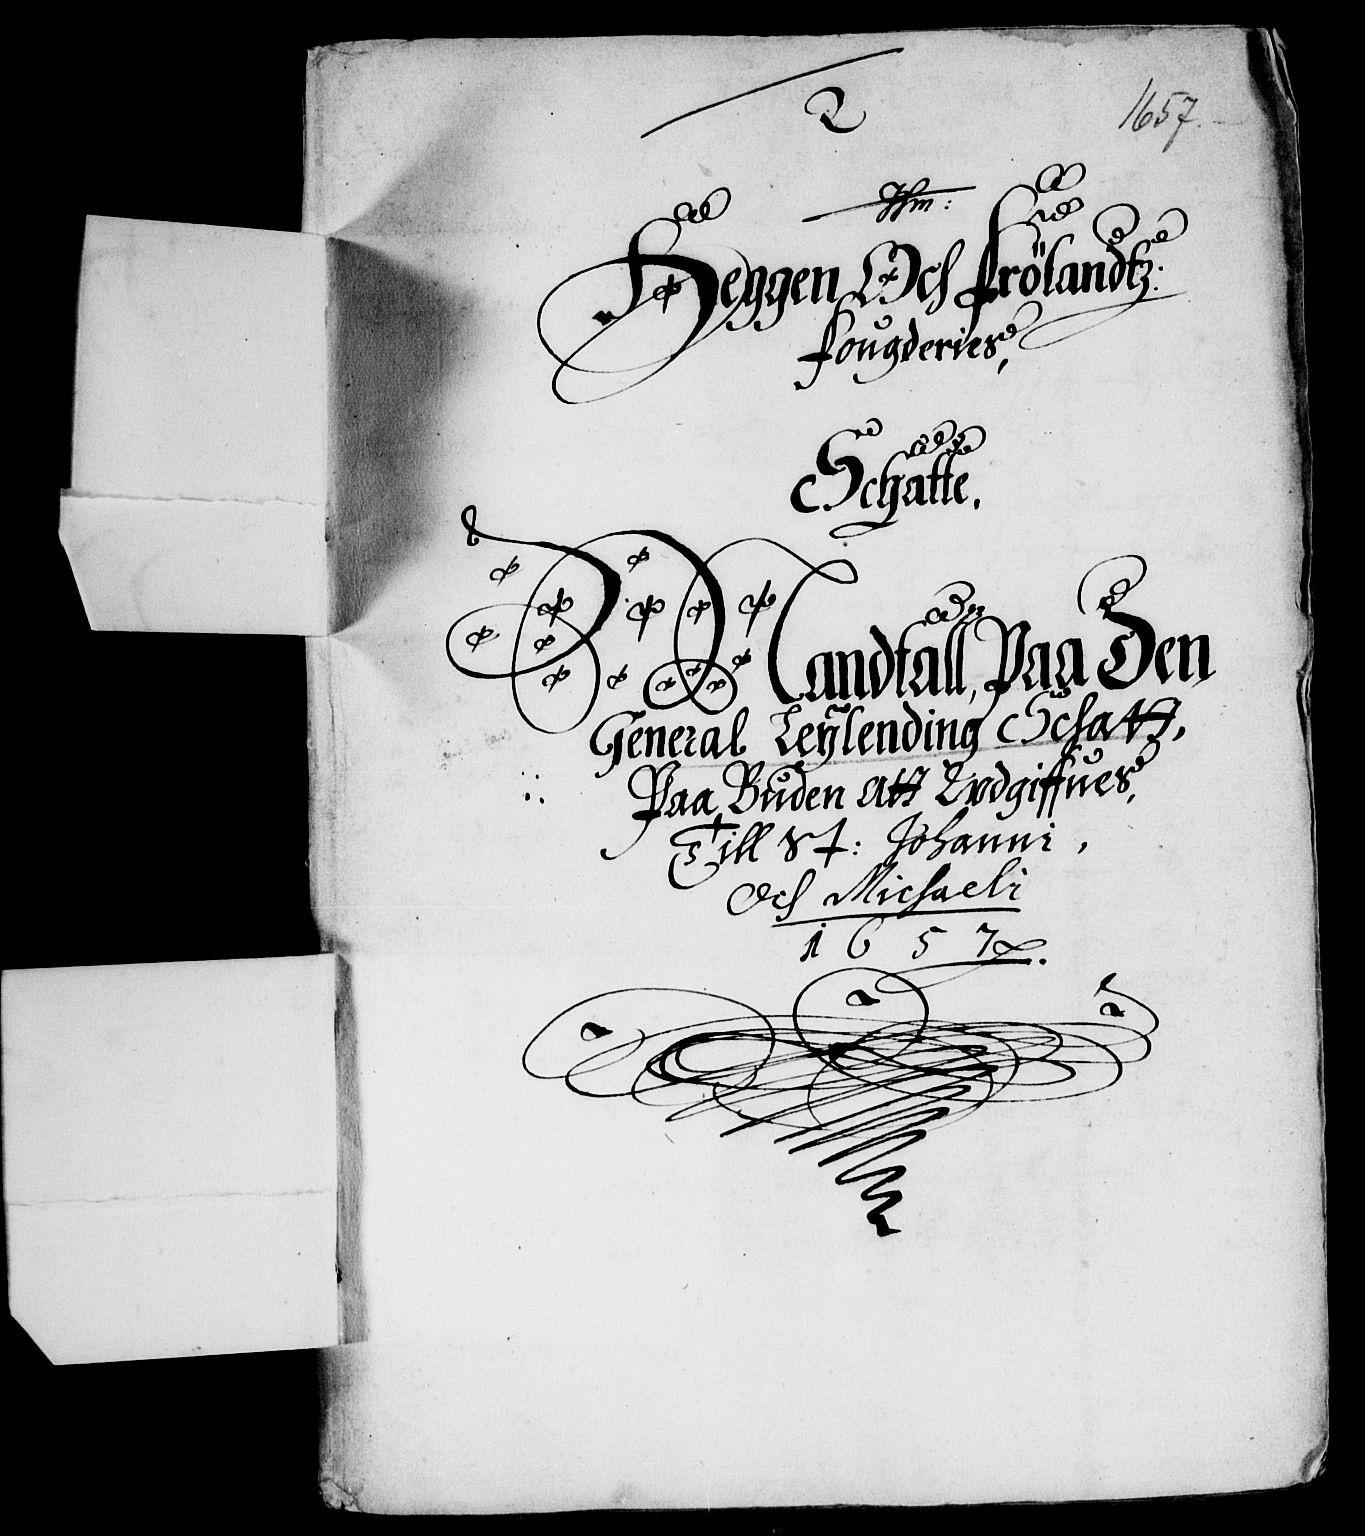 2
1657.
Heggen Och frölandtz:
fougderies,
Schatte.
Mandtall, Paa Den
General Leylending Schatt,
Paa Buden Att Vdgiffues,
Till St: Johanni,
Och Michaeli
1657.